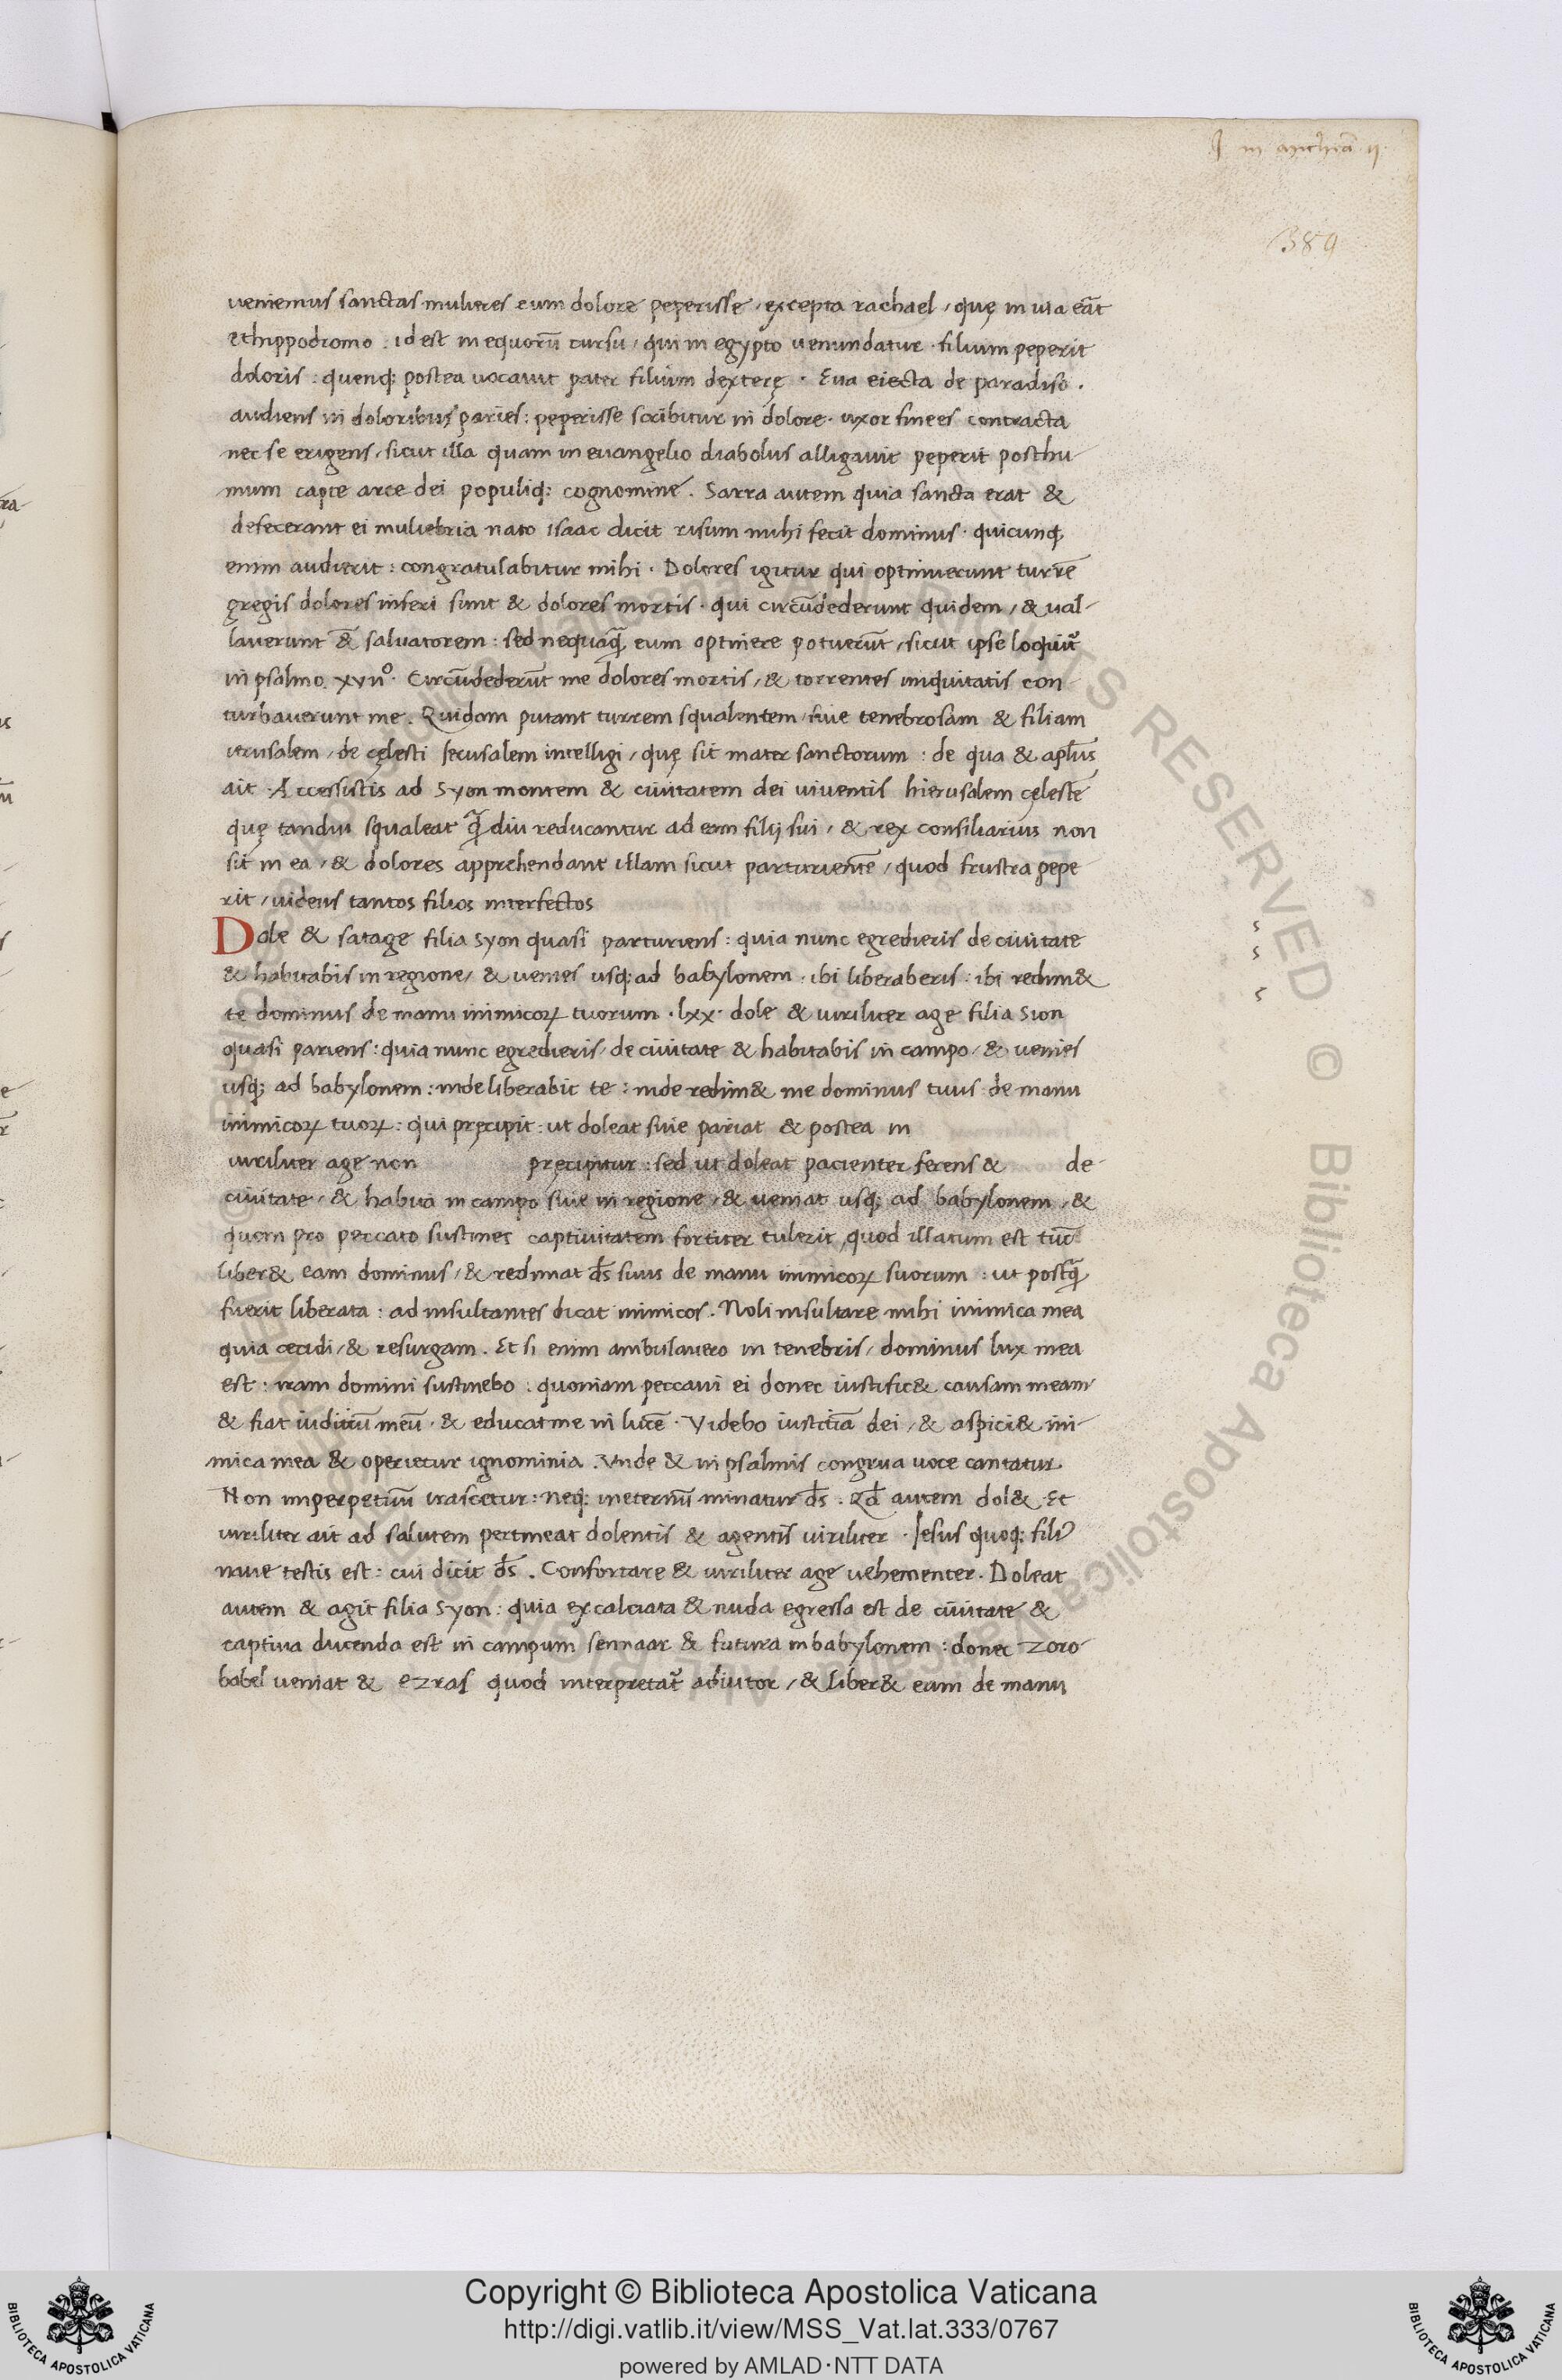 J in michea ij.
389
ueniemus sanctas mulieres cum dolore peperisse, excepta rachael, quę in uia eāt
ethippodromo. id est in equorū cursu, qui in egypto uenundatur. filium peperit
doloris: quenq; postea uocauit pater filium dexterę. Eua eiecta de paradiso.
audiens in doloribus paries: peperisse scribitur in dolore. uxor finees contracta
nec se erigens, sicut illa quam in euangelio diabolus alligauit peperit posthu
mum capte arce dei populiq; cognomine. Sarra autem quia sancta erat &
defecerant ei muliebria nato isaac dicit risum mihi fecit dominus. quicunq;
enim audierit: congratulabitur mihi. Dolores igitur qui optinuerunt turrē
gregis dolores inferi sunt & dolores mortis. qui circūdederunt quidem, & ual-
lauerunt & saluatorem: sed nequaq̄ eum optinere potuerūt, sicut ipse loquit᷑
in psalmo. xvııº. Circūdederūt me dolores mortis, & torrentes iniquitatis con
turbauerunt me. Quidam putant turrem squalentem, siue tenebrosam & filiam
ierusalem, de cęlesti Ierusalem intelligi, quę sit mater sanctorum: de qua & apl̄us
ait. Accessistis ad Syon montem & ciuitatem dei uiuentis hierusalem cęlestē
quę tandiu squaleat q̄ diu reducantur ad eam filij sui, & rex consiliarius non
sit in ea, & dolores apprehendant illam sicut parturientē, quod frustra pepe
rit, uidens tantos filios interfectos
Dole & satage filia syon quasi parturiens: quia nunc egredieris de ciuitate
& habitabis in regione, & uenies usq; ad babylonem. ibi liberaberis: ibi redim&
te dominus de manu inimicoꝝ tuorum. lxx. dole & uiriliter age filia Sion
quasi pariens: quia nunc egredieris, de ciuitate & habitabis in campo, & uenies
usq; ad babylonem: inde liberabit te: inde redim& me dominus tuus de manu
inimicoꝝ tuoꝝ: qui pręcipit: ut doleat siue pariat & postea in
uiriliter age non pręcipitur: sed ut doleat pacienter ferens & de-
ciuitate, & habita in campo siue in regione, & ueniat usq; ad babylonem, &
quem pro peccato sustines captiuitatem fortiter tulerit, quod illatum est tūc
liber& eam dominus, & redimat d̄s suus de manu inimicoꝝ suorum: ut postq̄
fuerit liberata: ad insultantes dicat inimicos. Noli insultare mihi inimica mea
quia cecidi, & resurgam. Et si enim ambulauero in tenebris, dominus lux mea
est: iram domini sustinebo: quoniam peccaui ei donec iustific& causam meam
& fiat iudiciū meū. & educat me in lucē. Videbo iusticiā dei, & aspici& ini-
mica mea & operietur ignominia. Vnde & in psalmis congrua uoce cantatur
Non imperpetuū irascetur: neq; ineternū minatur d̄s. Qd̄ autem dol& Et
uiriliter ait ad salutem pertineat dolentis & agentis uiriliter. Iesus quoq; fili᷒
naue testis est: cui dicit d̄s. Confortare & uiriliter age uehementer. Doleat
autem & agit filia Syon: quia excalciata & nuda egressa est de ciuitate &
captiua ducenda est in campum sennaar & futura in babylonem: donec zoro-
babel ueniat & ezras quod interpretat᷑ adiutor, & liber& eam de manu
Copyright © Biblioteca Apostolica Vaticana
http://digi.vatlib.it/view/MSS_Vat.lat.333/0767
powered by AMLAD·NTT DATA